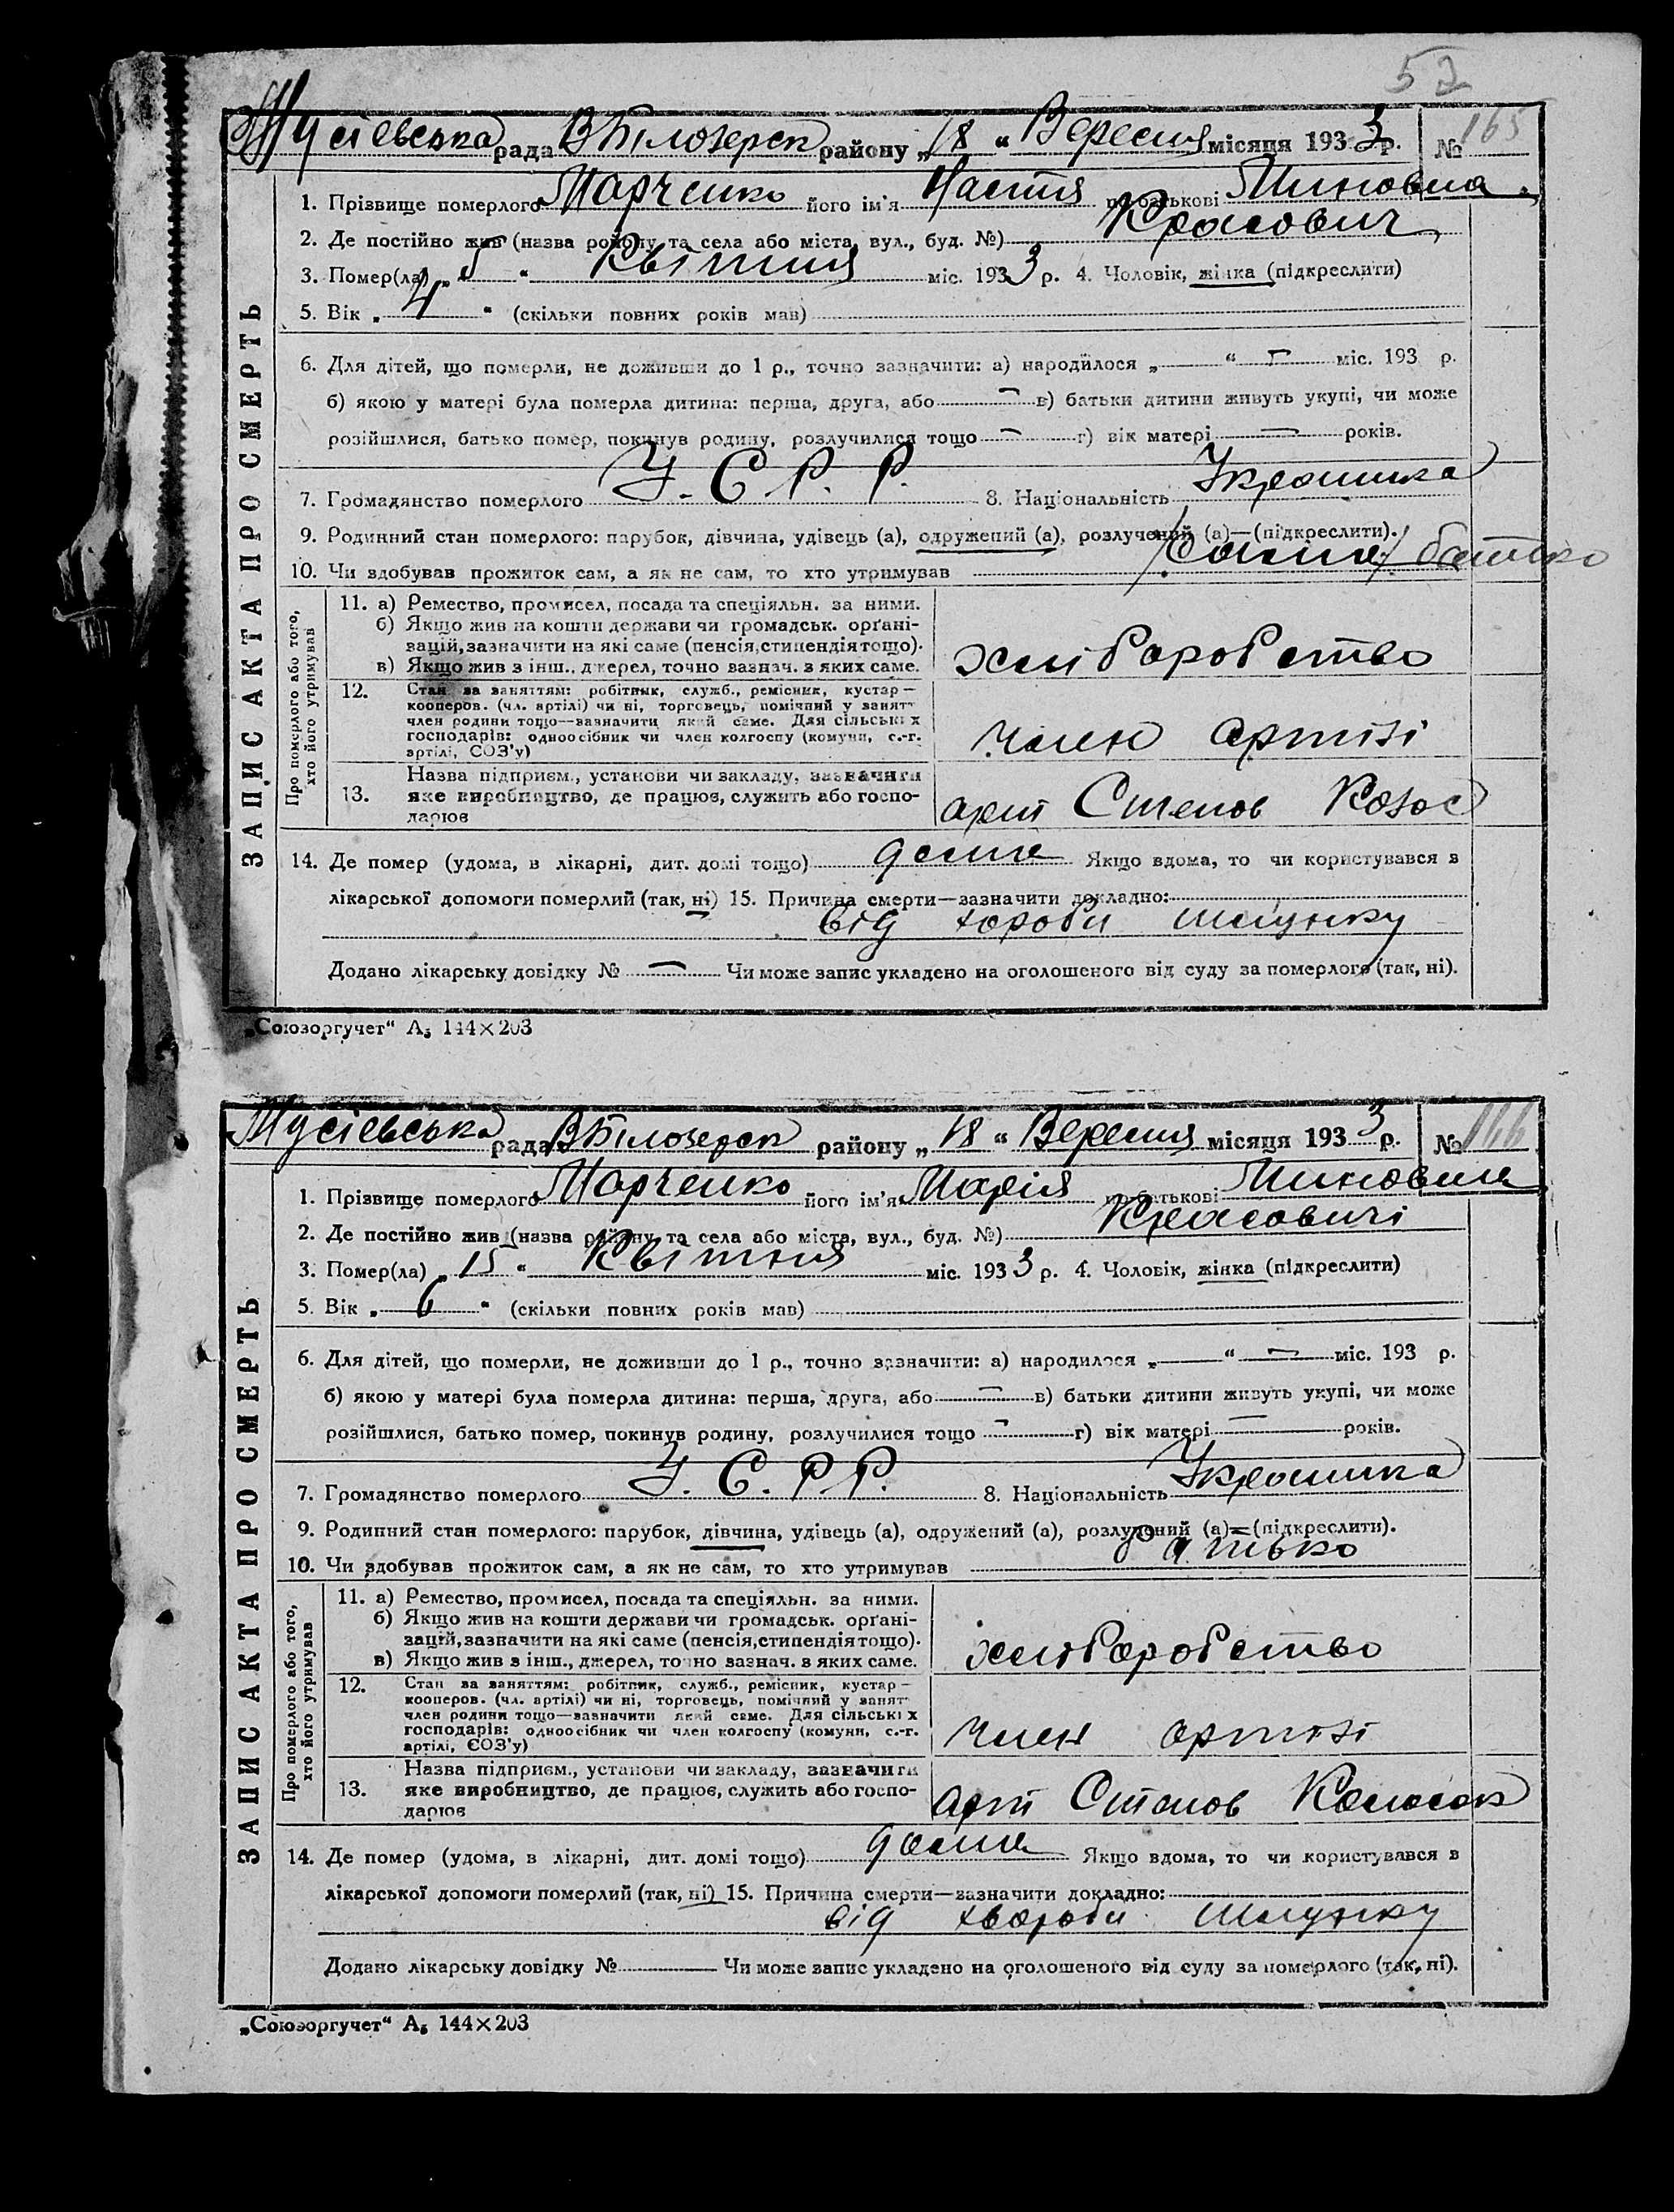 52
Мусіевська рада ВБілозерск району „18“ Вересня місяця 1933 р. № 165
1. Прізвище померлого Марченко його ім'я Настя по батькові Миновна
2. Де постійно жив (назва району та села або міста, вул., буд. №) Красович
3. Помер(ла) „5“ Квітня міс. 1933 р. 4. Чоловік, жінка (підкреслити)
5. Вік „4“ (скільки повних років мав)
6. Для дітей, що померли, не доживши до 1 р., точно зазначити: а) народилося „—“ — міс. 193 р.
б) якою у матері була померла дитина: перша, друга, або — в) батьки дитини живуть укупі, чи може
розійшлися, батько помер, покинув родину, розлучилися тощо — г) вік матері — років.
7. Громадянство померлого У.С.Р.Р. 8. Національність Украинка
9. Родинний стан померлого: парубок, дівчина, удівець (а), одружений (а), розлучений (а)—(підкреслити).
10. Чи здобував прожиток сам, а як не сам, то хто утримував батько
ЗАПИС АКТА ПРО СМЕРТЬ
Про померлого або того, хто його утримував
11. а) Ремество, промисел, посада та спеціяльн. за ними.
б) Якщо жив на кошти держави чи громадськ. орґані-
зацій, зазначити на які саме (пенсія, стипендія тощо).
в) Якщо жив з інш., джерел, точно зазнач. з яких саме.
хліборобство
12. Стан за заняттям: робітник, служб., ремісник, кустар—
кооперов. (чл. артілі) чи ні, торговець, помічний у занятт
член родини тощо—зазначити який саме. Для сільських
господарів: одноосібник чи член колгоспу (комуни, с.-г.
артілі, СОЗ'у)
член артілі
13. Назва підприєм., установи чи закладу, зазначити
яке виробництво, де працює, служить або госпо-
дарює
арт Степов Колос
14. Де помер (удома, в лікарні, дит. домі тощо) дома Якщо вдома, то чи користувався з
лікарської допомоги померлий (так, ні) 15. Причина смерти—зазначити докладно:
від хороби шлунку
Додано лікарську довідку № — Чи може запис укладено на оголошеного від суду за померлого (так, ні).
„Союзоргучет“ А5 144×203
Мусіевська рада ВБілозерск району „18“ Вересня місяця 1933 р. № 166
1. Прізвище померлого Марченко його ім'я Марія по батькові Миновна
2. Де постійно жив (назва району та села або міста, вул., буд. №) Красовичі
3. Помер(ла) „15“ Квітня міс. 1933 р. 4. Чоловік, жінка (підкреслити)
5. Вік „6“ (скільки повних років мав)
6. Для дітей, що померли, не доживши до 1 р., точно зазначити: а) народилося „—“ — міс. 193 р.
б) якою у матері була померла дитина: перша, друга, або — в) батьки дитини живуть укупі, чи може
розійшлися, батько помер, покинув родину, розлучилися тощо — г) вік матері — років.
7. Громадянство померлого У.С.Р.Р. 8. Національність Украинка
9. Родинний стан померлого: парубок, дівчина, удівець (а), одружений (а), розлучений (а)—(підкреслити).
10. Чи здобував прожиток сам, а як не сам, то хто утримував батько
ЗАПИС АКТА ПРО СМЕРТЬ
Про померлого або того, хто його утримував
11. а) Ремество, промисел, посада та спеціяльн. за ними.
б) Якщо жив на кошти держави чи громадськ. орґані-
зацій, зазначити на які саме (пенсія, стипендія тощо).
в) Якщо жив з інш., джерел, точно зазнач. з яких саме.
хліборобство
12. Стан за заняттям: робітник, служб., ремісник, кустар—
кооперов. (чл. артілі) чи ні, торговець, помічний у занятт
член родини тощо—зазначити який саме. Для сільських
господарів: одноосібник чи член колгоспу (комуни, с.-г.
артілі, СОЗ'у)
член артілі
13. Назва підприєм., установи чи закладу, зазначити
яке виробництво, де працює, служить або госпо-
дарює
арт Степов Колосок
14. Де помер (удома, в лікарні, дит. домі тощо) дома Якщо вдома, то чи користувався з
лікарської допомоги померлий (так, ні) 15. Причина смерти—зазначити докладно:
від хвороби шлунку
Додано лікарську довідку № — Чи може запис укладено на оголошеного від суду за померлого (так, ні).
„Союзоргучет“ А5 144×203